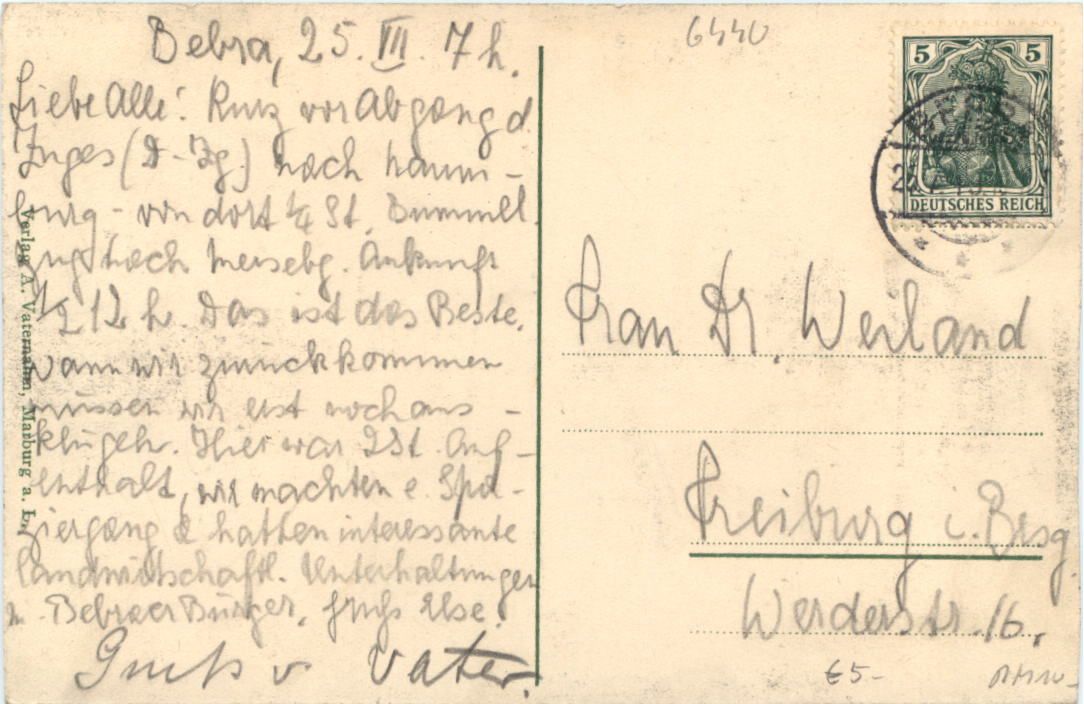 Bebra, 25. III. 7 h.
Liebe Alle! Kurz vor Abgang d.
Zuges (D-Zg.) nach Naum-
burg - von dort 1/4 St. Bummel
zug nach Mersebg. Ankunft
1/2 12 h. Das ist das Beste.
Wann wir zurückkommen
müssen wir erst noch aus-
klügeln. Hier war 2 St. Auf-
enthalt, wir machten e. Spa-
ziergang & hatten interessante
landwirtschaftl. Unterhaltungen
m. Bebraer Bürger. Gruß Else.
Gruß v Vater.
Verlag A. Vaternahm, Marburg a. L.
6440
5 5
DEUTSCHES REICH
Frau Dr. Weiland
Freiburg i. Brsg
Werderstr. 16.
€5-